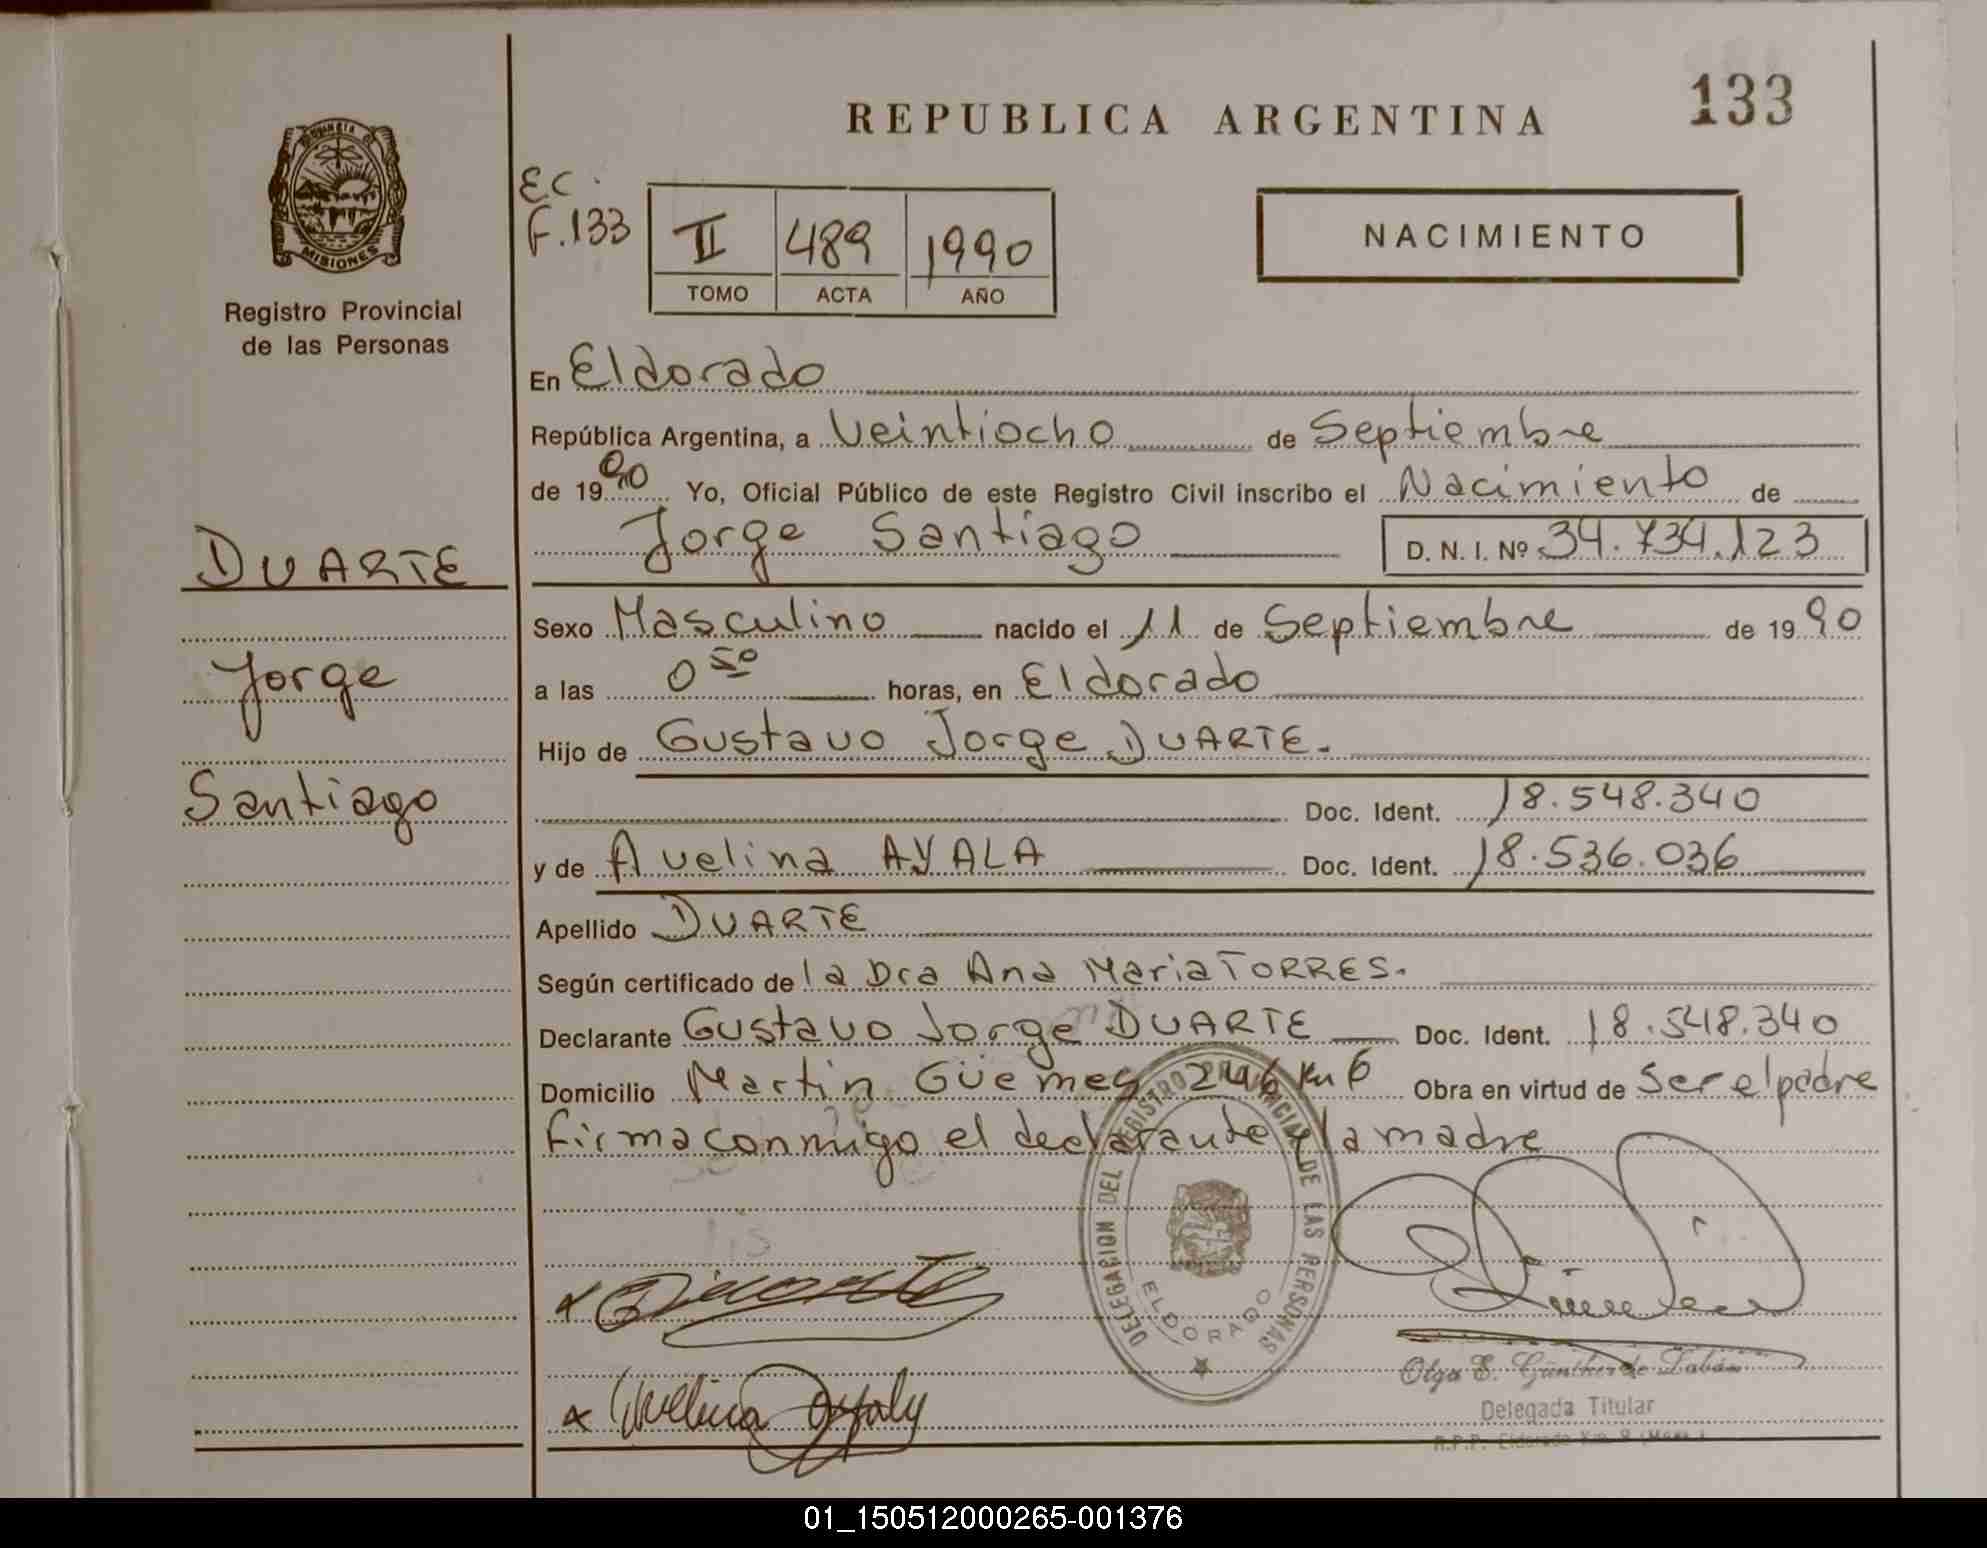 REPUBLICA ARGENTINA
133
PROVINCIA DE
MISIONES
Registro Provincial
de las Personas
EC.
F.133
II 489 1990
TOMO ACTA AÑO
NACIMIENTO
En Eldorado
República Argentina, a Veintiocho de Septiembre
de 1990 Yo, Oficial Público de este Registro Civil inscribo el Nacimiento de
Jorge Santiago D. N. I. Nº 34.734.123
DUARTE
Jorge
Santiago
Sexo Masculino nacido el 11 de Septiembre de 1990
a las 0 50 horas, en Eldorado
Hijo de Gustavo Jorge DUARTE.
Doc. Ident. 18.548.340
y de Avelina AYALA Doc. Ident. 18.536.036
Apellido DUARTE
Según certificado de la Dra Ana Maria TORRES.
Declarante Gustavo Jorge DUARTE Doc. Ident. 18.548.340
Domicilio Martin Güemes 246 Km 6 Obra en virtud de Ser el padre
firma conmigo el declarante y la madre
DELEGACION DEL REGISTRO PROVINCIAL DE LAS PERSONAS
ELDORADO
Duarte
Avelina Ayala
Olga E. Günther de
Delegada Titular
R.P.P. Eldorado Km 9
01_150512000265-001376